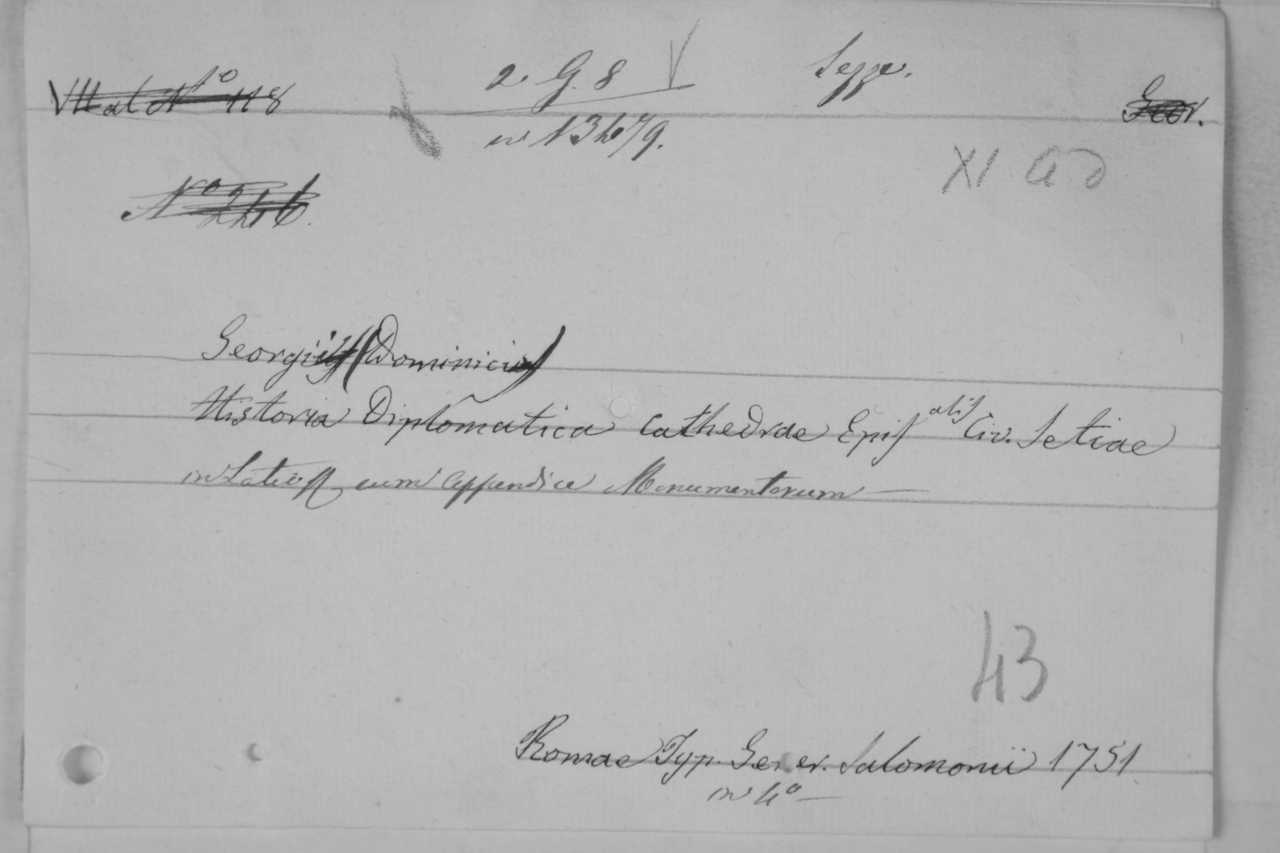 VIII at No 118
2. G. 8 V
Sezze.
Geor.
in 13479.
XI a d
No 246.
Georgii (Dominicus)
Historia Diplomatica Cathedrae Episalis Civ. Setiae
in Latio cum Appendice Monumentorum —
43
Romae Typ. Gener. Salomonii 1751
in 4o —